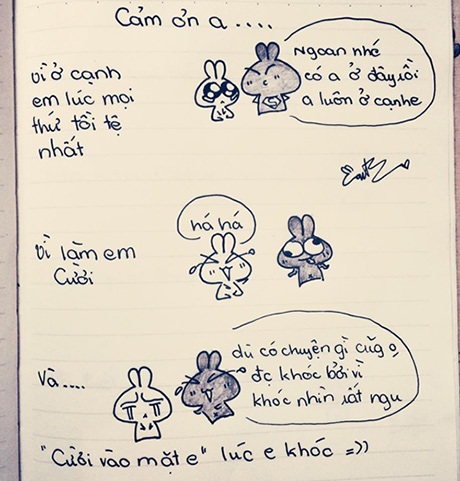 Cảm ơn a....
vì ở cạnh
em lúc mọi
thứ tồi tệ
nhất
Ngoan nhé
có a ở đây rồi
a luôn ở cạnhe
vì làm em
cười
há há
Và....
dù có chuyện gì cũg o
đc khóc bởi vì
khóc nhìn rất ngu
"Cười vào mặt e" lúc e khóc =))